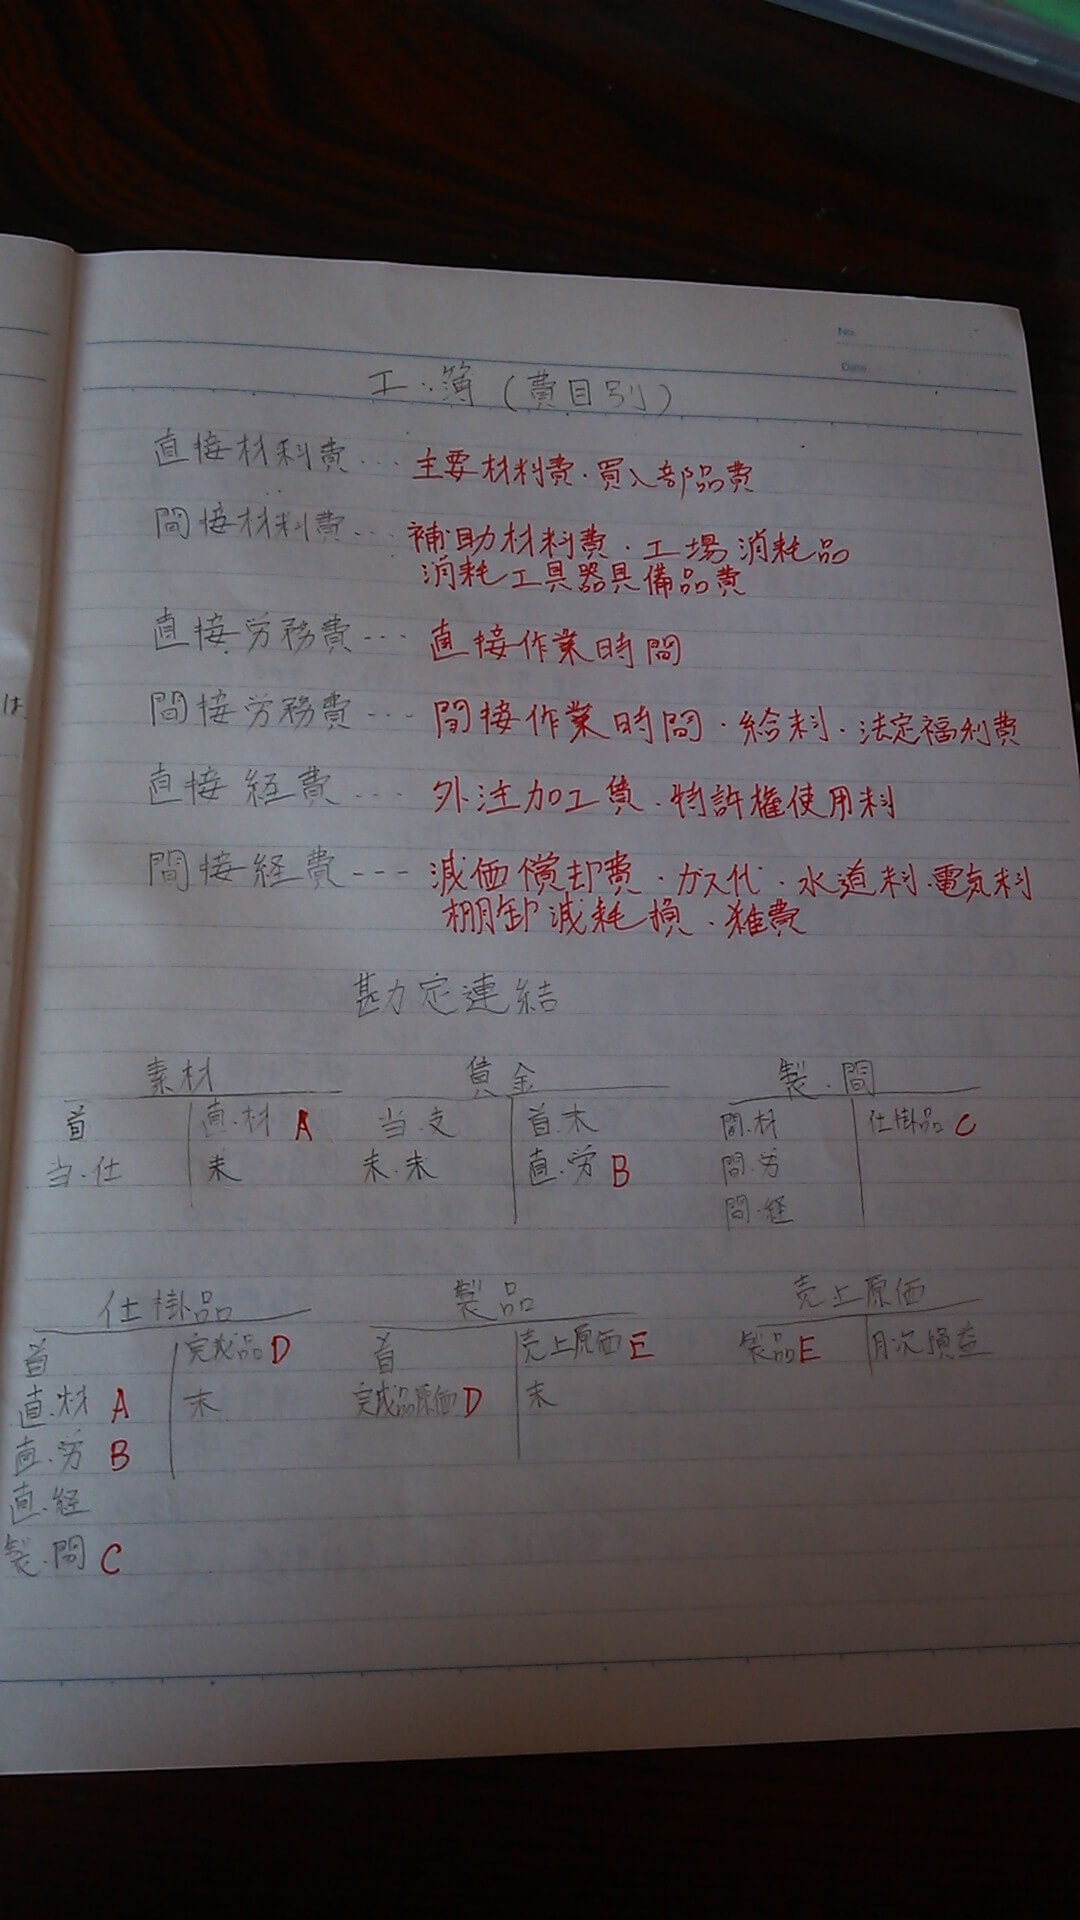 No.
Date
工.簿(費目別)
直接材料費... 主要材料費.買入部品費
間接材料費... 補助材料費.工場消耗品
消耗工具器具備品費
直接労務費... 直接作業時間
は
間接労務費... 間接作業時間.給料.法定福利費
直接経費... 外注加工賃.特許権使用料
間接経費--- 減価償却費.ガス代.水道料.電気料
棚卸減耗損.雑費
勘定連結
素材 賃金 製.間
首 直.材 A 当.支 首.未 間.材 仕掛品 C
当.仕 末 末.未 直.労 B 間.労
間.経
仕掛品 製品 売上原価
首 完成品 D 首 売上原価 E 製品 E 月次損益
直.材 A 末 完成品原価 D 末
直.労 B
直.経
製.間 C